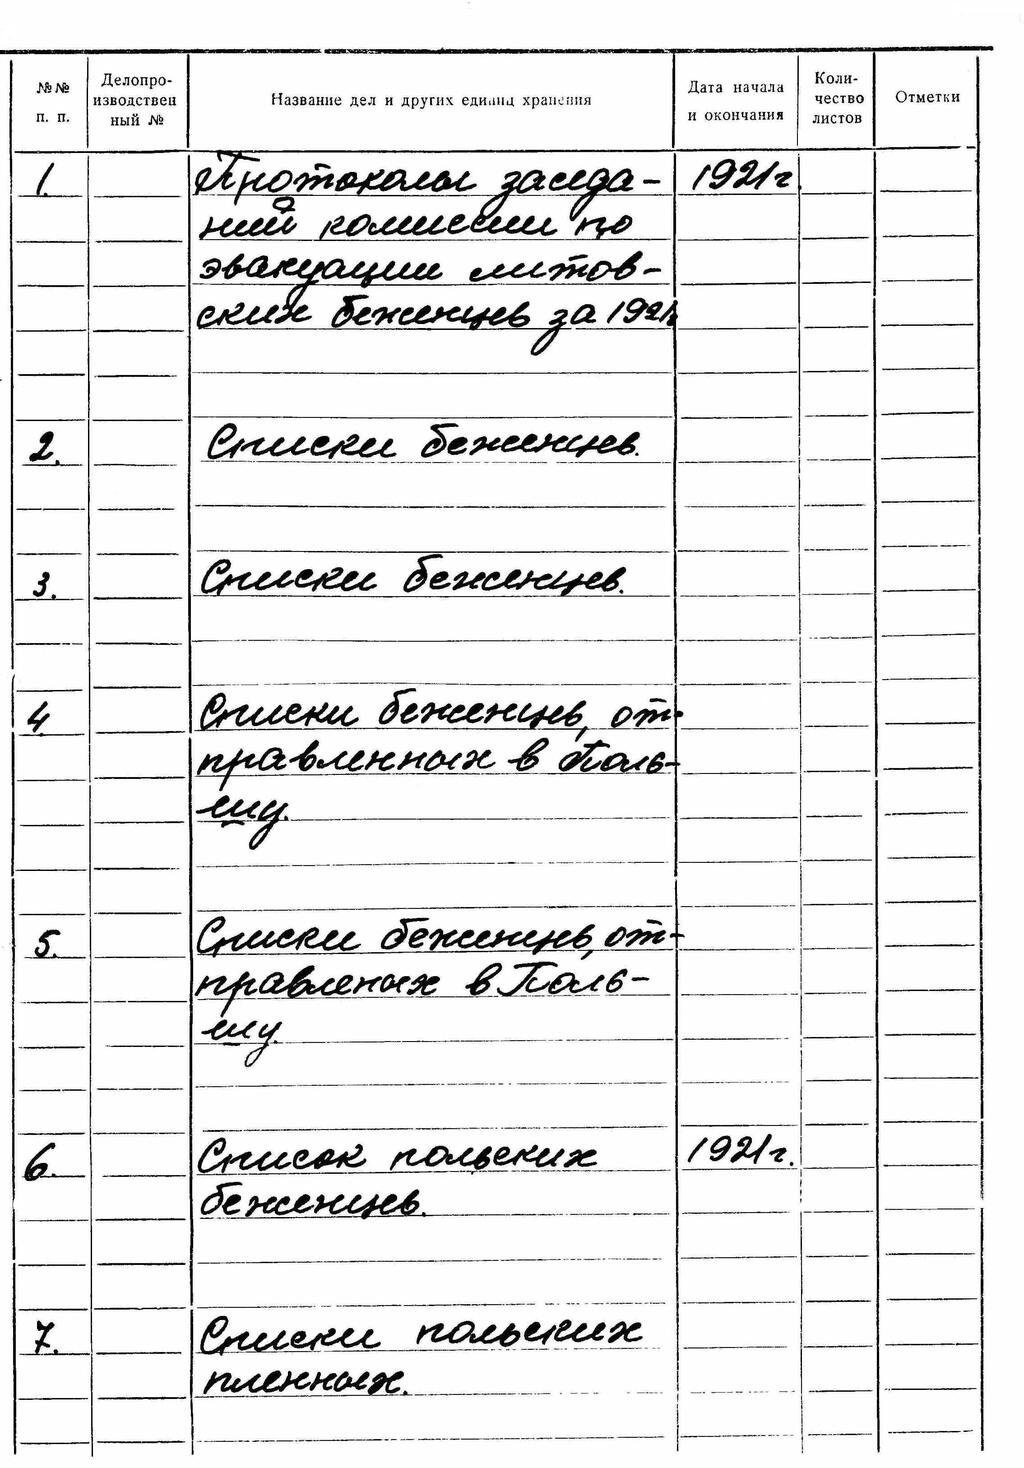 №№ п. п.
Делопро-
изводствен
ный №
Название дел и других единиц хранения
Дата начала
и окончания
Коли-
чество
листов
Отметки
1. Протоколы заседа- 1921г.
ний комиссии по
эвакуации литов-
ских беженцев за 1921г
2. Списки беженцев.
3. Списки беженцев.
4 Списки беженцев, от-
правленных в Поль-
шу.
5. Списки беженцев, от-
правленых в Поль-
шу.
6. Список польских 1921г.
беженцев.
7. Списки польских
пленных.